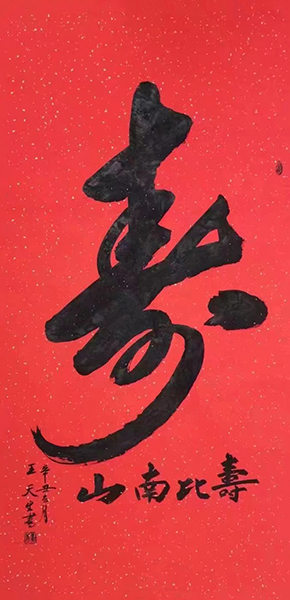 寿
壽比南山
辛丑年月
王天生書